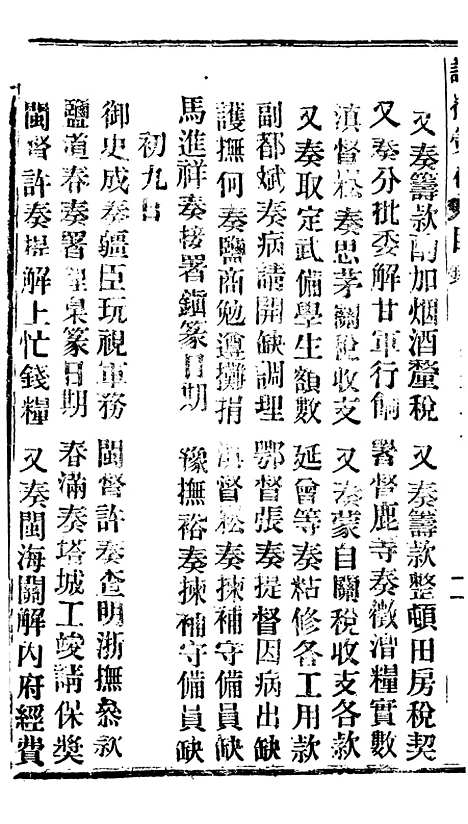 又奏籌款酌加烟酒釐稅　又奏籌款整頓田房稅契
又奏分批委解甘軍行餉　署督鹿等奏徵漕糧實數
滇督崧奏思茅關稅收支　又奏蒙自關稅收支各款
又奏取定武備學生額數　延曾等奏粘修各工用款
副都斌奏病請開缺調理　鄂督張奏提督因病出缺
護撫何奏鹽商勉遵攤捐　滇督崧奏揀補守備員缺
馬進祥奏接署鎮篆日期　豫撫裕奏揀補守備員缺
初九日
御史成奏疆臣玩視軍務　閩督許奏查明浙撫叅款
鹽道春奏署理臬篆日期　春滿奏塔城工竣請保獎
閩督許奏提解上忙錢糧　又奏閩海關解內府經費